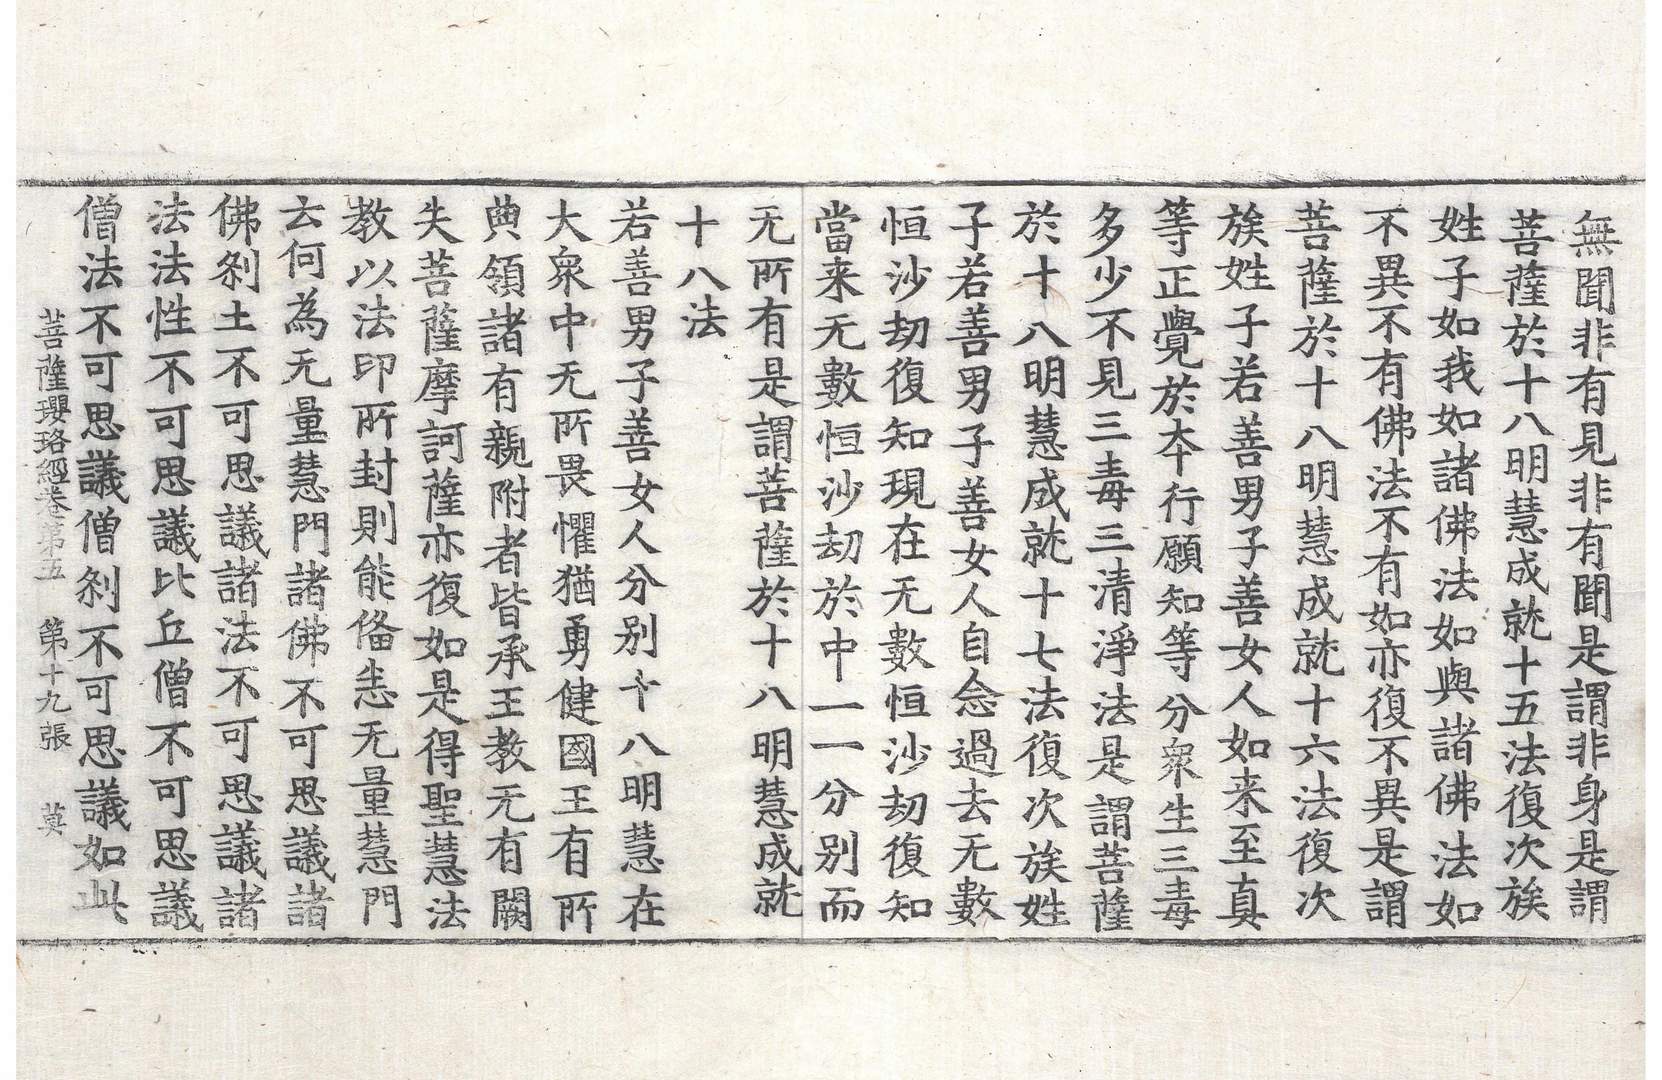 無聞非有見非有聞是謂非身是謂
菩薩於十八明慧成就十五法復次族
姓子如我如諸佛法如與諸佛法如
不異不有佛法不有如亦復不異是謂
菩薩於十八明慧成就十六法復次
族姓子若善男子善女人如来至真
等正覺於本行願知等分衆生三毒
多少不見三毒三清淨法是謂菩薩
於十八明慧成就十七法復次族姓
子若善男子善女人自念過去无數
恒沙劫復知現在无數恒沙劫復知
當来无數恒沙劫於中一一分别而
无所有是謂菩薩於十八明慧成就
十八法
若善男子善女人分别十八明慧在
大衆中无所畏懼猶勇健國王有所
典領諸有親附者皆承王教无有闕
失菩薩摩訶薩亦復如是得聖慧法
教以法印所封則能俻悉无量慧門
云何為无量慧門諸佛不可思議諸
佛刹土不可思議諸法不可思議諸
法法性不可思議比丘僧不可思議
僧法不可思議僧刹不可思議如此
菩薩瓔珞經卷第五　第十九張　莫